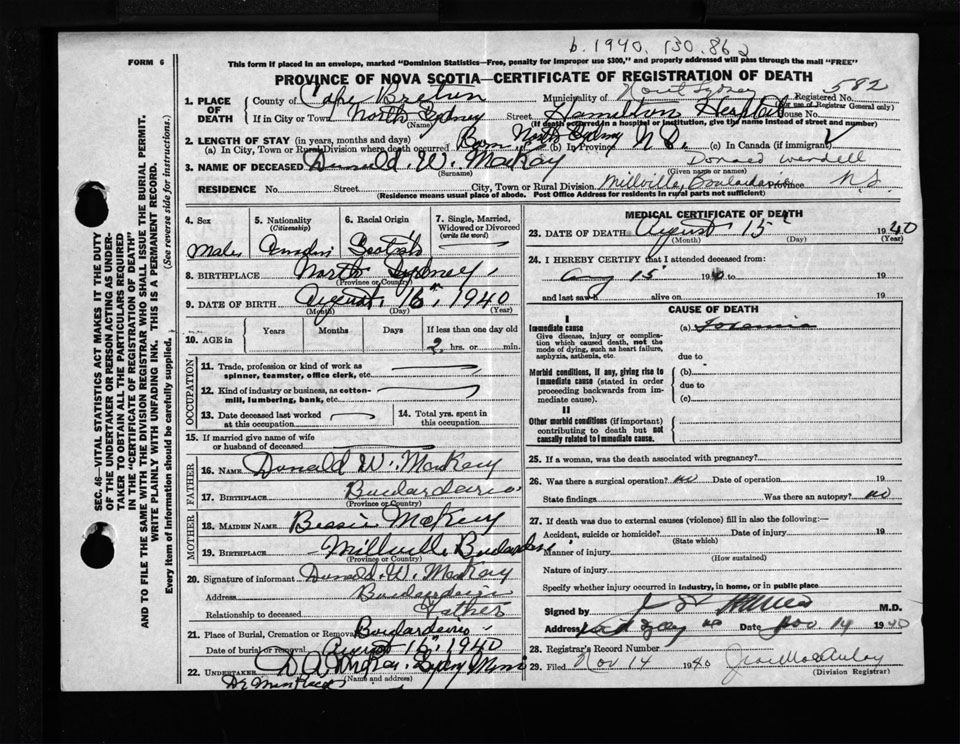 b. 1940. 130.862
FORM 6
This form if placed in an envelope, marked "Dominion Statistics—Free, penalty for improper use $300," and properly addressed will pass through the mail "FREE"
PROVINCE OF NOVA SCOTIA—CERTIFICATE OF REGISTRATION OF DEATH
1. PLACE OF DEATH
County of Cape Breton Municipality of North Sydney Registered No. 582
(For use of Registrar General only)
If in City or Town North Sydney Street Hamilton Hospital House No.
(Name) (If death occurred in a hospital or institution, give the name instead of street and number)
2. LENGTH OF STAY (in years, months and days)
(a) In City, Town or Rural Division where death occurred Born in North Sydney (b) In Province N S. (c) In Canada (if immigrant)
3. NAME OF DECEASED Donald W. MacKay Donald Wendell
(Surname) (Given name or names)
RESIDENCE No. Street City, Town or Rural Division Millville, Boularderie Province N.S.
(Residence means usual place of abode. Post Office Address for residents in rural parts not sufficient)
4. Sex
Male
5. Nationality
(Citizenship)
6. Racial Origin
Scotish
7. Single, Married, Widowed or Divorced
(write the word)
8. BIRTHPLACE North Sydney
(Province or Country)
9. DATE OF BIRTH August 16th, 1940
(Month) (Day) (Year)
10. AGE in
Years Months Days If less than one day old
2 hrs. or min.
OCCUPATION
11. Trade, profession or kind of work as spinner, teamster, office clerk, etc.
12. Kind of industry or business, as cotton-mill, lumbering, bank, etc.
13. Date deceased last worked at this occupation
14. Total yrs. spent in this occupation.
15. If married give name of wife or husband of deceased
FATHER
16. NAME Donald W. MacKay
17. BIRTHPLACE Boularderie
(Province or Country)
MOTHER
18. MAIDEN NAME Bessie McKay
19. BIRTHPLACE Millville Boularderie
(Province or Country)
20. Signature of informant Donald W. MacKay
Address Boularderie
Relationship to deceased Father
21. Place of Burial, Cremation or Removal Boularderie
Date of burial or removal August 16, 1940
22. UNDERTAKER
(Name and address)
MEDICAL CERTIFICATE OF DEATH
23. DATE OF DEATH August 15 1940
(Month) (Day) (Year)
24. I HEREBY CERTIFY that I attended deceased from:
Aug 15 19 to 19
and last saw h alive on 19
CAUSE OF DEATH
I
Immediate cause (a)
Give disease, injury or complication which caused death, not the mode of dying, such as heart failure, asphyxia, asthenia, etc.
due to
Morbid conditions, if any, giving rise to immediate cause (stated in order proceeding backwards from immediate cause).
(b)
due to
(c)
II
Other morbid conditions (if important) contributing to death but not causally related to immediate cause.
25. If a woman, was the death associated with pregnancy?
26. Was there a surgical operation? no Date of operation 19
State findings Was there an autopsy? no
27. If death was due to external causes (violence) fill in also the following:—
Accident, suicide or homicide? Date of injury 19
(State which)
Manner of injury
(How sustained)
Nature of injury
Specify whether injury occurred in industry, in home, or in public place
Signed by M.D.
Address Date Nov. 14 1940
28. Registrar's Record Number
29. Filed Nov 14 1940
(Division Registrar)
SEC. 46—VITAL STATISTICS ACT MAKES IT THE DUTY OF THE UNDERTAKER OR PERSON ACTING AS UNDERTAKER TO OBTAIN ALL THE PARTICULARS REQUIRED IN THE "CERTIFICATE OF REGISTRATION OF DEATH" AND TO FILE THE SAME WITH THE DIVISION REGISTRAR WHO SHALL ISSUE THE BURIAL PERMIT.
WRITE PLAINLY WITH UNFADING INK. THIS IS A PERMANENT RECORD.
Every item of information should be carefully supplied. (See reverse side for instructions.)